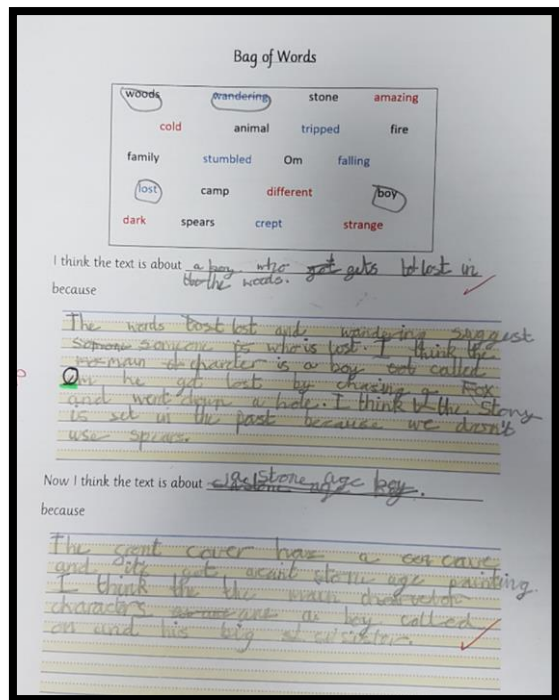 Bag of Words
woods wandering stone amazing
cold animal tripped fire
family stumbled Om falling
lost camp different boy
dark spears crept strange
I think the text is about a boy who got gets lost in
the woods.
because
The words lost and wandering suggest
someone is who is lost. I think the
main charcter is a boy called
Om he got lost by chasing a Fox
and went down a hole. I think the story
is set in the past because we don't
use spears.
Now I think the text is about a stone age boy.
because
The front cover has a cave
and its got stone age painting.
I think the the main
characters are a boy called
om and his big